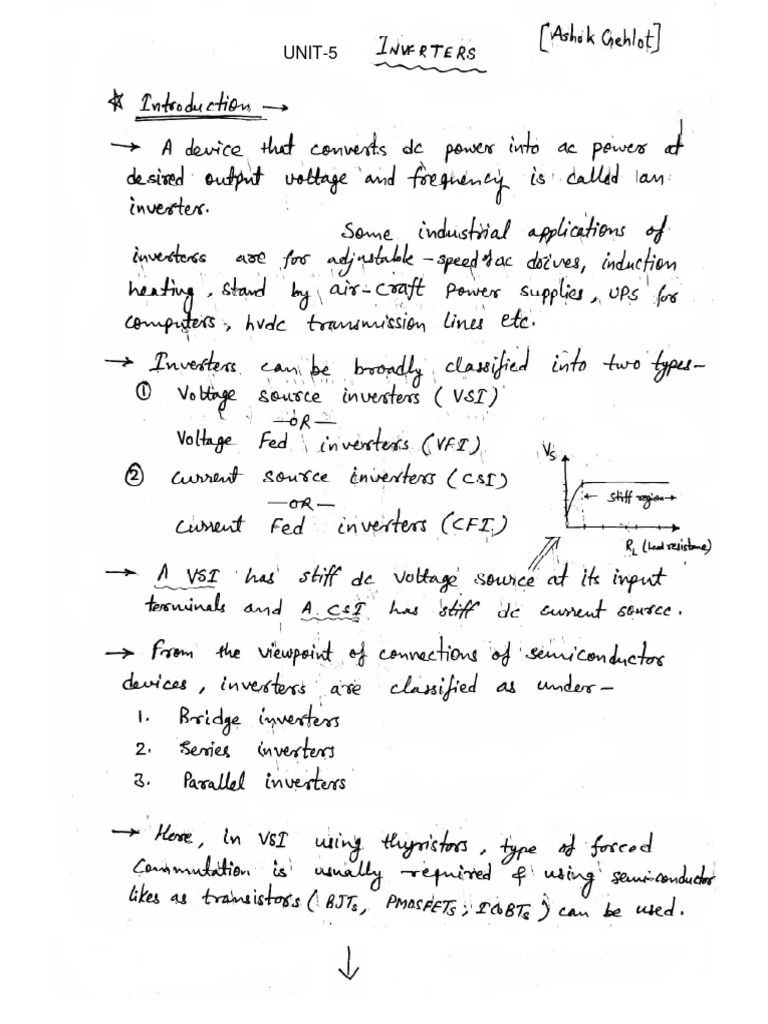 UNIT-5 INVERTERS [Ashok Gehlot]
☆ Introduction →
→ A device that converts dc power into ac power at
desired output voltage and frequency is called an
inverter.
Some industrial applications of
inverters are for adjustable-speed ac drives, induction
heating, stand by air-craft power supplies, UPS for
computers, hvdc transmission lines etc.
→ Inverters can be broadly classified into two types-
① Voltage source inverters (VSI)
—OR—
Voltage Fed inverters (VFI)
② Current source inverters (CSI)
—OR—
Current Fed inverters (CFI)
Vs
← stiff region →
RL (load resistance)
→ A VSI has stiff dc voltage source at its input
terminals and A CSI has stiff dc current source.
→ From the viewpoint of connections of semiconductor
devices, inverters are classified as under-
1. Bridge inverters
2. Series inverters
3. Parallel inverters
→ Here, in VSI using thyristors, type of forced
Commutation is usually required & using semi-conductor
likes as transistors (BJTs, PMOSFETs, IGBTs) can be used.
↓